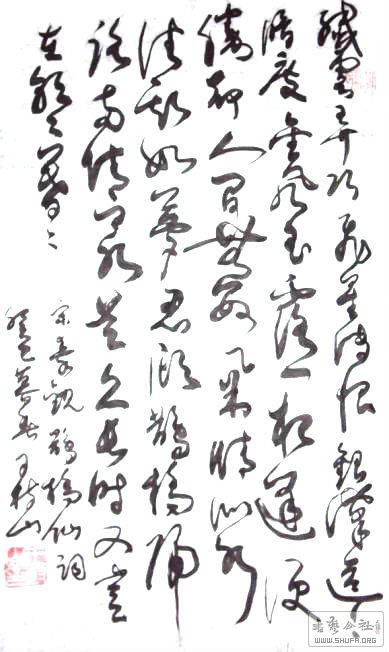 纖雲弄巧飛星傳恨銀漢迢〻
暗度金風玉露一相逢便
勝卻人間無數柔情似水
佳期如夢忍顧鵲橋歸
路兩情若是久長時又豈
在朝〻暮〻
宋秦觀鵲橋仙詞
癸巳暮春王山
書藝公社
WWW.SHUFA.ORG